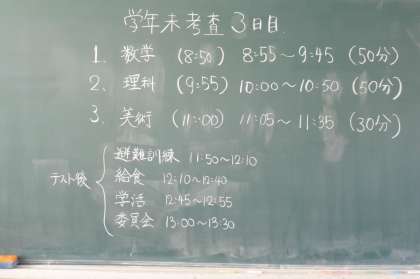 学年末考査3日目
1. 数学 (8:50) 8:55〜9:45 (50分)
2. 理科 (9:55) 10:00〜10:50 (50分)
3. 美術 (11:00) 11:05〜11:35 (30分)
テスト後
避難訓練 11:50〜12:10
給食 12:10〜12:40
学活 12:45〜12:55
委員会 13:00〜13:30